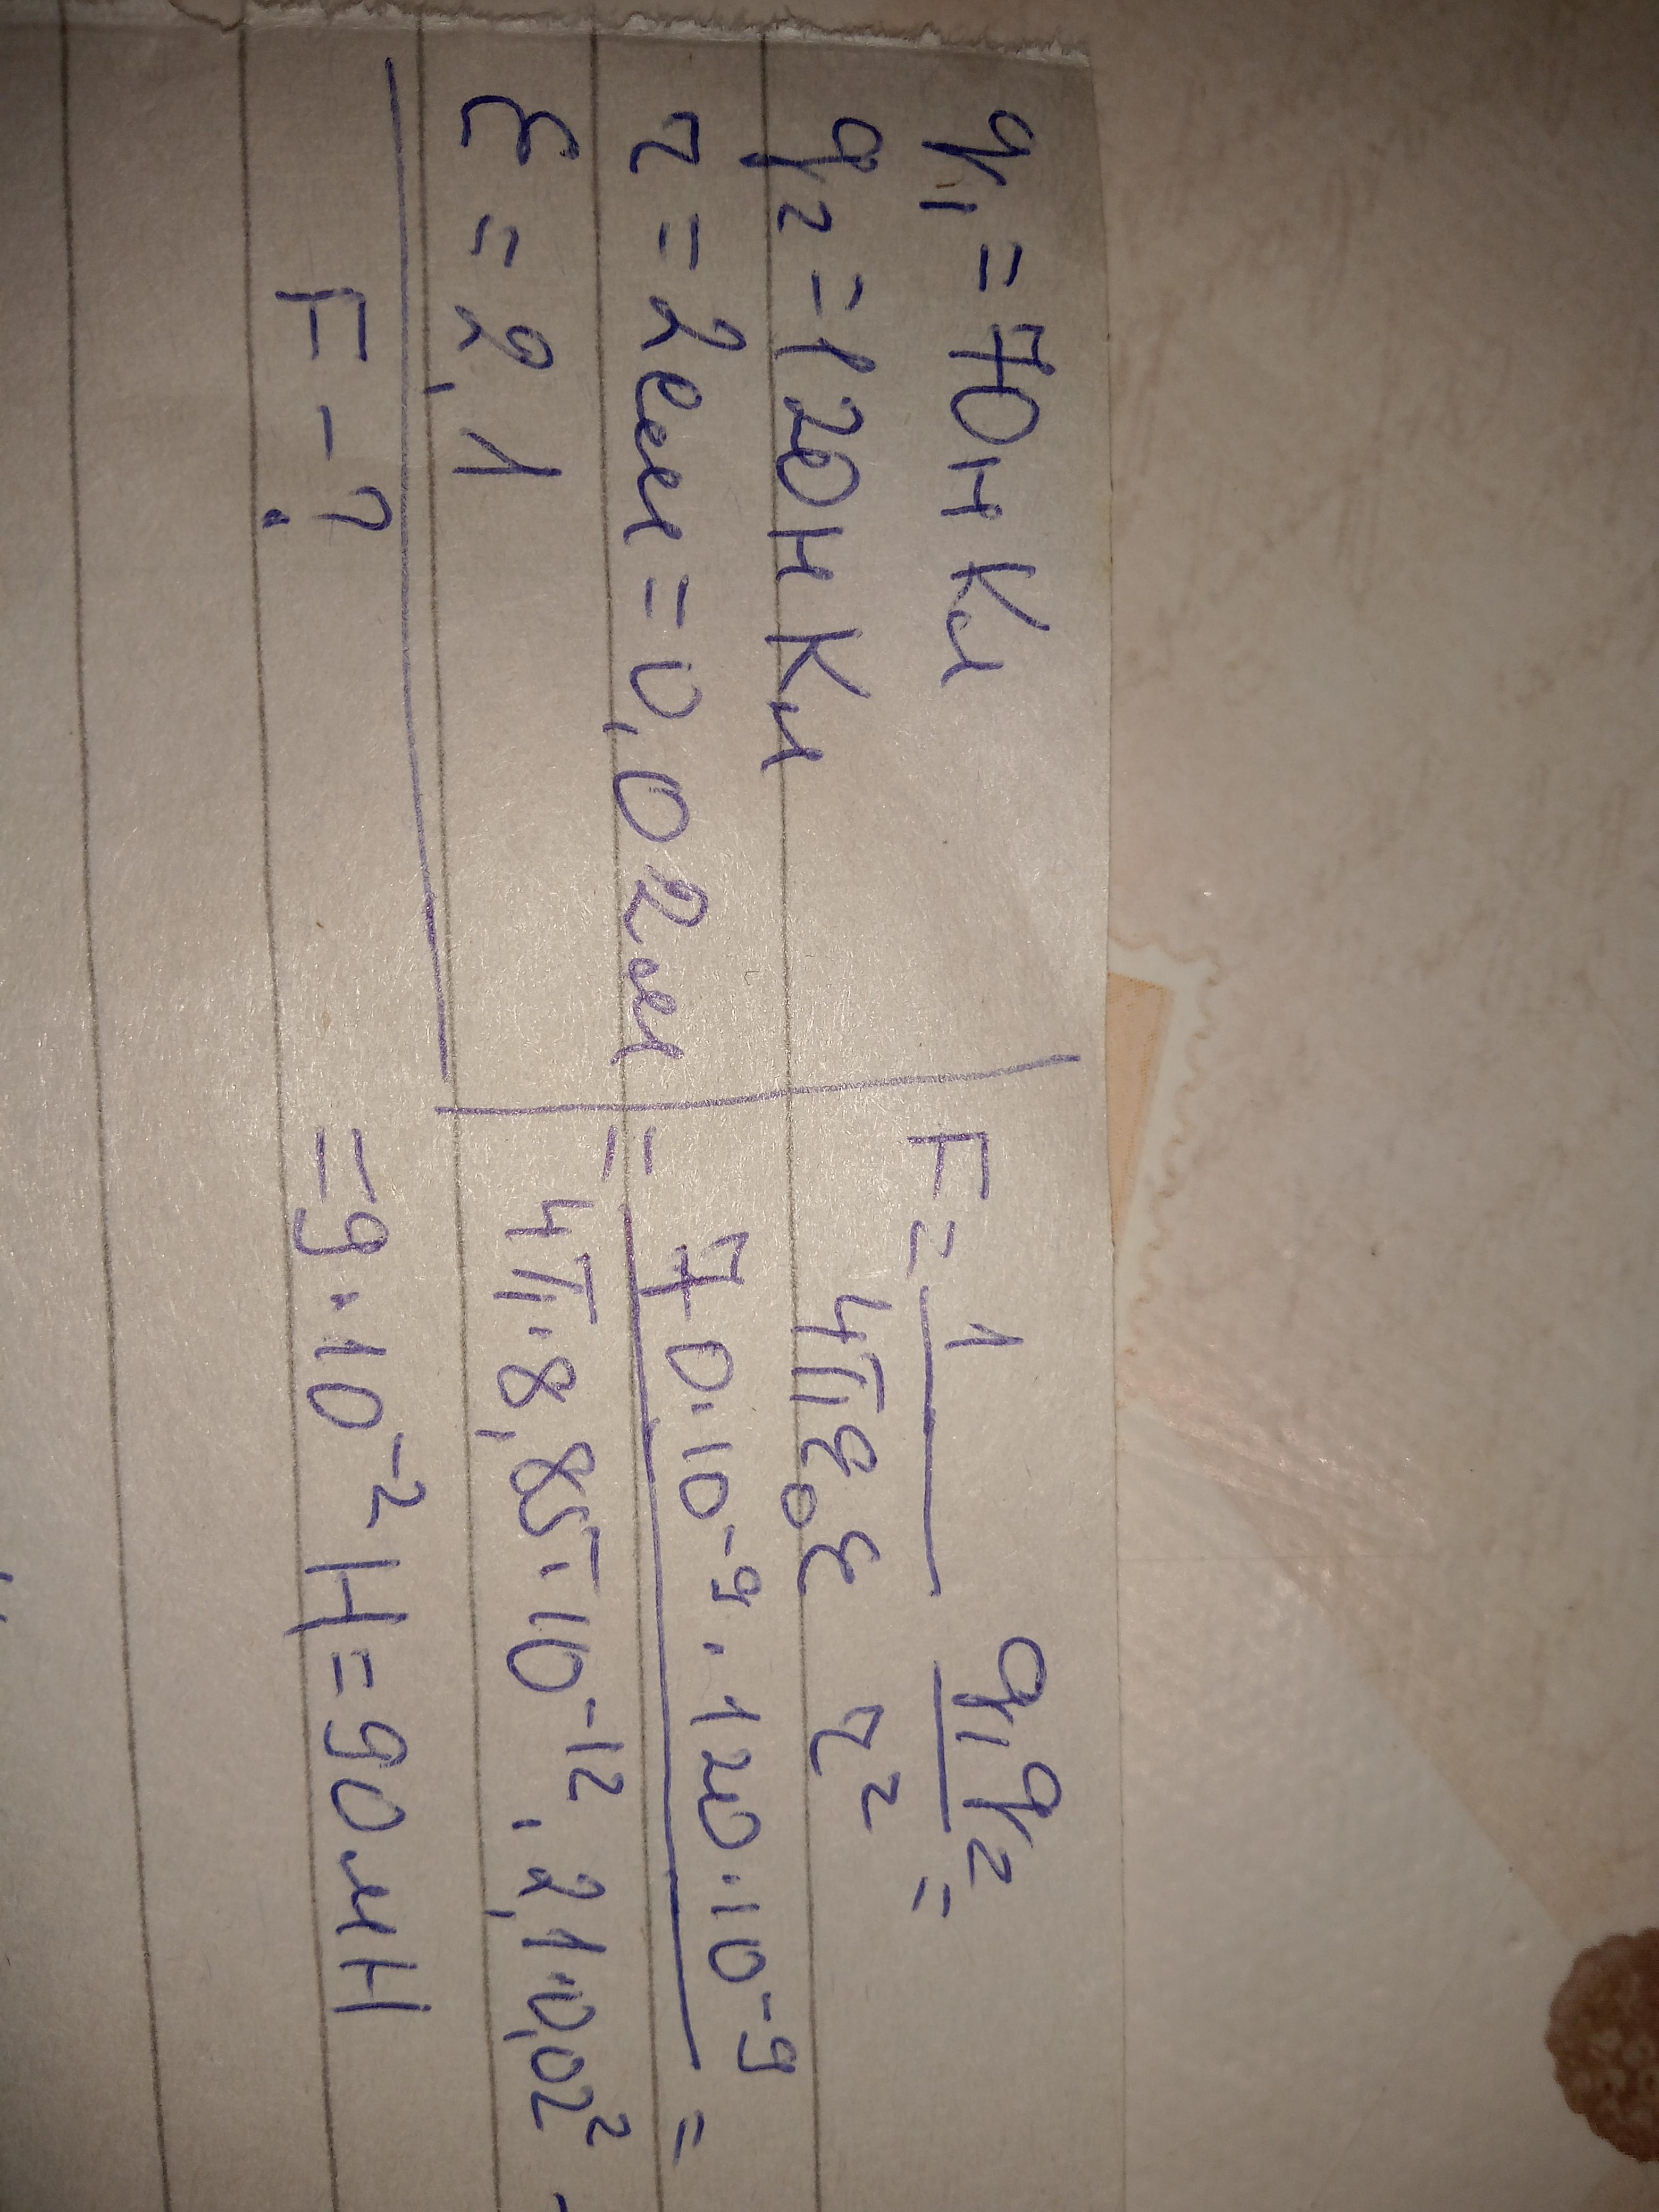 q₁ = 70нКл
q₂ = 120нКл
r = 2см = 0,02м
ε = 2,1
F - ?
F = 1/(4πε₀ε) q₁q₂/r² =
= (70·10⁻⁹·120·10⁻⁹)/(4π·8,85·10⁻¹²·2,1·0,02²) =
= 9·10⁻²Н = 90мН